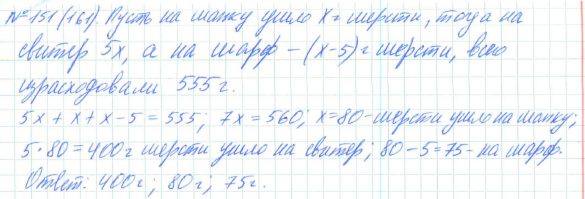 № 151 (161) Пусть на шапку ушло x г шерсти, тогда на
свитер 5x, а на шарф – (x-5) г шерсти, всего
израсходовали 555 г.
5x + x + x - 5 = 555; 7x = 560; x = 80 - шерсти ушло на шапку;
5 · 80 = 400 г шерсти ушло на свитер; 80 - 5 = 75 - на шарф.
Ответ: 400 г; 80 г; 75 г.